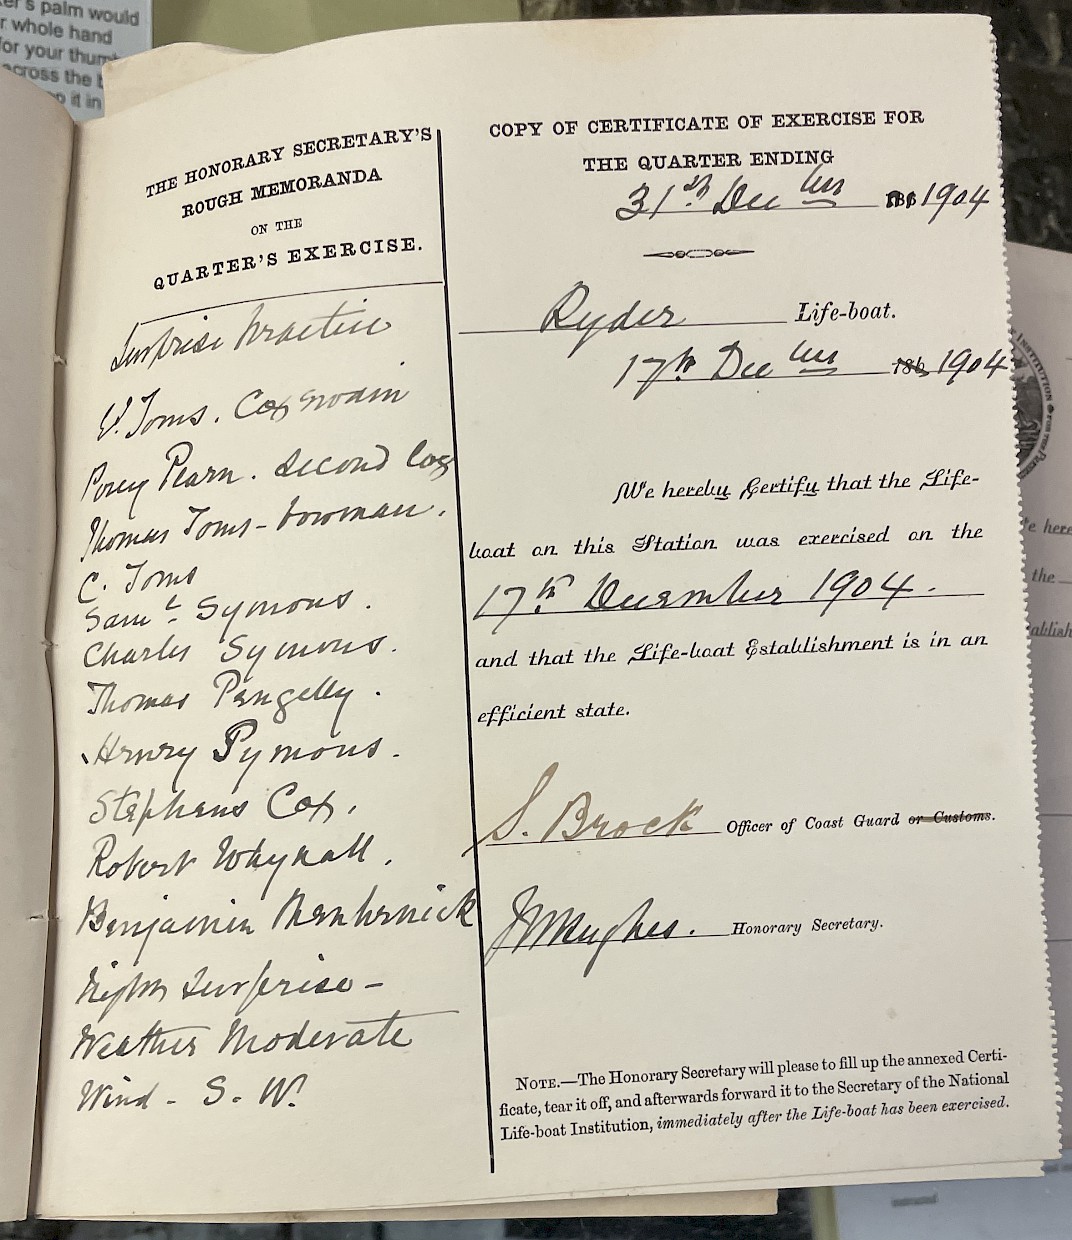 er's palm would
r whole hand
for your thum
across the b
p it in
THE HONORARY SECRETARY'S
ROUGH MEMORANDA
ON THE
QUARTER'S EXERCISE.
Surprise Practice
W. Toms. Coxswain
Percy Pearn. Second Cox
Thomas Toms - bowman.
C. Toms
Saml. Symons.
Charles Symons.
Thomas Pengelly.
Henry Symons.
Stephens Cox.
Robert Whynall.
Benjamin
Night Surprise -
Weather Moderate
Wind - S. W.
COPY OF CERTIFICATE OF EXERCISE FOR
THE QUARTER ENDING
31st Decber 1904
Ryder Life-boat.
17th Decber 186 1904
We hereby Certify that the Life-
boat on this Station was exercised on the
17th December 1904.
and that the Life-boat Establishment is in an
efficient state.
S. Brock Officer of Coast Guard or Customs.
Hughes. Honorary Secretary.
NOTE.—The Honorary Secretary will please to fill up the annexed Certi-
ficate, tear it off, and afterwards forward it to the Secretary of the National
Life-boat Institution, immediately after the Life-boat has been exercised.
INSTITUTION FOR THE
e here
the
ablish